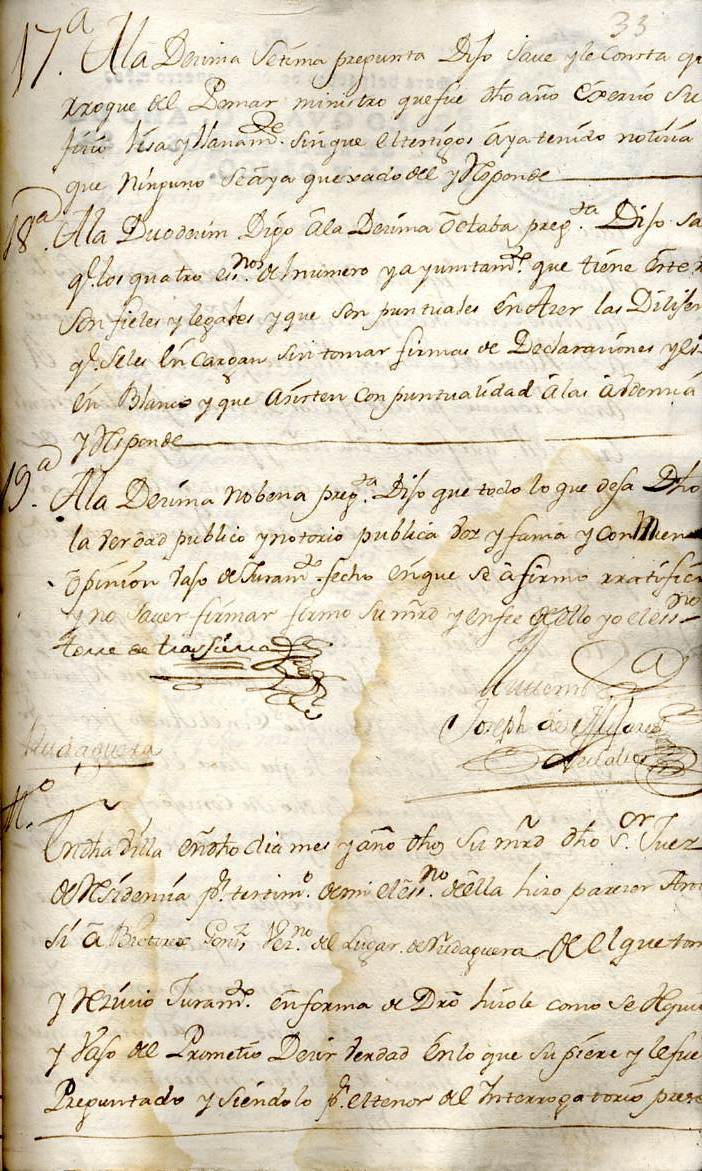 33
17.ª Ala Decima Setima pregunta Dijo save y le Consta q
rroque del Pomar ministro que fue dho año exerçio Su
ofiçio lisa y llanam.te sin que el testigos aya tenido notiçia
que ninguno se aya quexado del y Responde
18.ª Ala Duodeçim Digo âla Deçima Octaba preg.ta Dijo Sa
q.e los quatro ess.nos del numero y ayuntam.to que tiene este
son fieles y legales y que son puntuales en Azer las Dilijen
q.e se les encargan sin tomar firmas de Declaraçiones y
en Blanco y que Asisten con puntualidad âlas Audençia
y Responde
19.ª Ala Deçima nobena preg.ta Dijo que todo lo que deja Dho
la verdad publico y notorio publica voz y fama y Comun
opinion vajo de Juram.to fecho en que se afirmo rratifico
y no saver firmar firmo su mrd y en fee dello yo el ess.no
torre de trassierra
Joseph de
Rudaguera
t.º
En dha villa en dho dia mes y año dhos su mrd dho s.or Juez
de Residençia p.r testim.º de mi el ess.no della hizo pareçer Ante
si â Gonz Vez.no del Lugar de Rudaguera del que tom
y Reçivio Juram.to en forma de Dro hizole como se Requi
y Vajo del Prometio Deçir verdad en lo que supiere y le fue
Preguntado y siendolo p.r el tenor del Interrogatorio prese